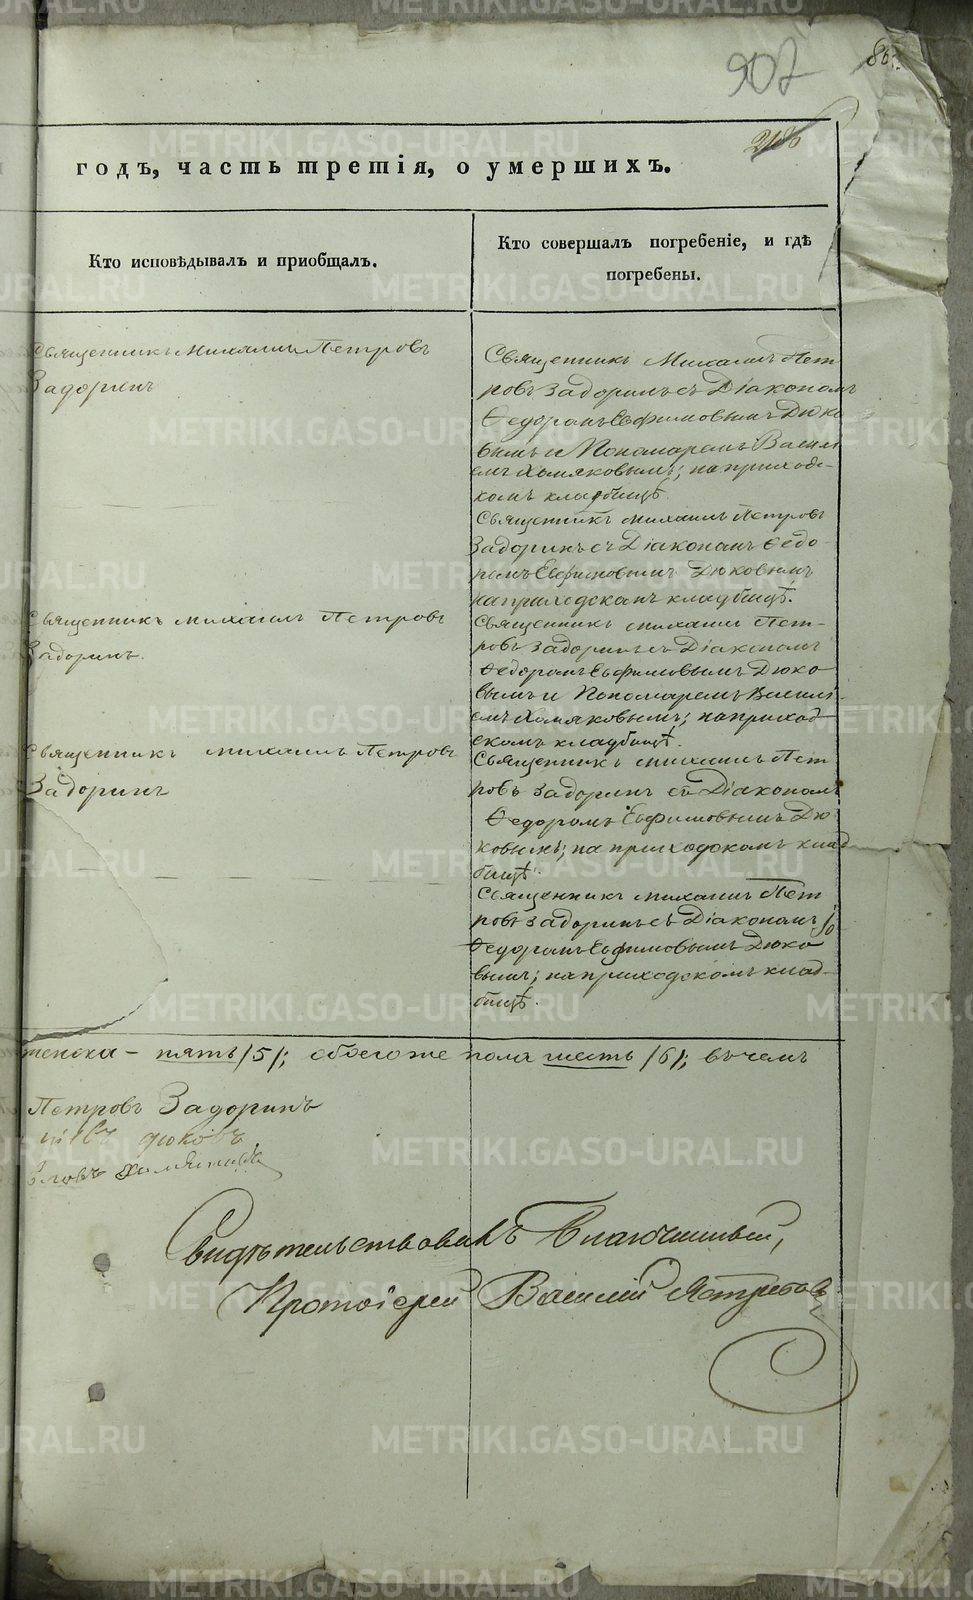 907
86
годъ, часть третія, о умершихъ.
Кто исповѣдывалъ и пріобщалъ.
Кто совершалъ погребеніе, и гдѣ
погребены.
Священникъ Михаилъ Петровъ
Задоринъ
Священникъ Михаилъ Пет
ровъ Задоринъ съ Діакономъ
Ѳедоромъ Евфимовымъ Дюко
вымъ и Пономаремъ Васил
емъ Хомяковымъ; на приход-
скомъ кладбищѣ.
Священникъ Михаилъ Петровъ
Задоринъ съ Діакономъ Ѳедо-
ромъ Евфимовымъ Дюковымъ
на приходскомъ кладбищѣ.
Священникъ Михаилъ Петровъ
Задоринъ.
Священникъ Михаилъ Пет-
ровъ Задоринъ съ Діакономъ
Ѳедоромъ Евфимовымъ Дюко
вымъ и Пономаремъ Васил-
емъ Хомяковымъ; на приход
скомъ кладбищѣ.
Священникъ Михаилъ Петровъ
Задоринъ
Священникъ Михаилъ Пет
ровъ Задоринъ съ Діакономъ
Ѳедоромъ Евфимовымъ Дю
ковымъ; на приходскомъ клад
бищѣ.
Священникъ Михаилъ Пет
ровъ Задоринъ съ Діакономъ
Ѳедоромъ Евфимовымъ Дюко
вымъ; на приходскомъ клад-
бищѣ.
женска – пять /5/; обоего же пола шесть /6/; въ чемъ
Петровъ Задоринъ
дюковъ
Свидѣтельствовалъ Благочинный,
Протоіерей Василій Ястребовъ
METRIKI.GASO-URAL.RU